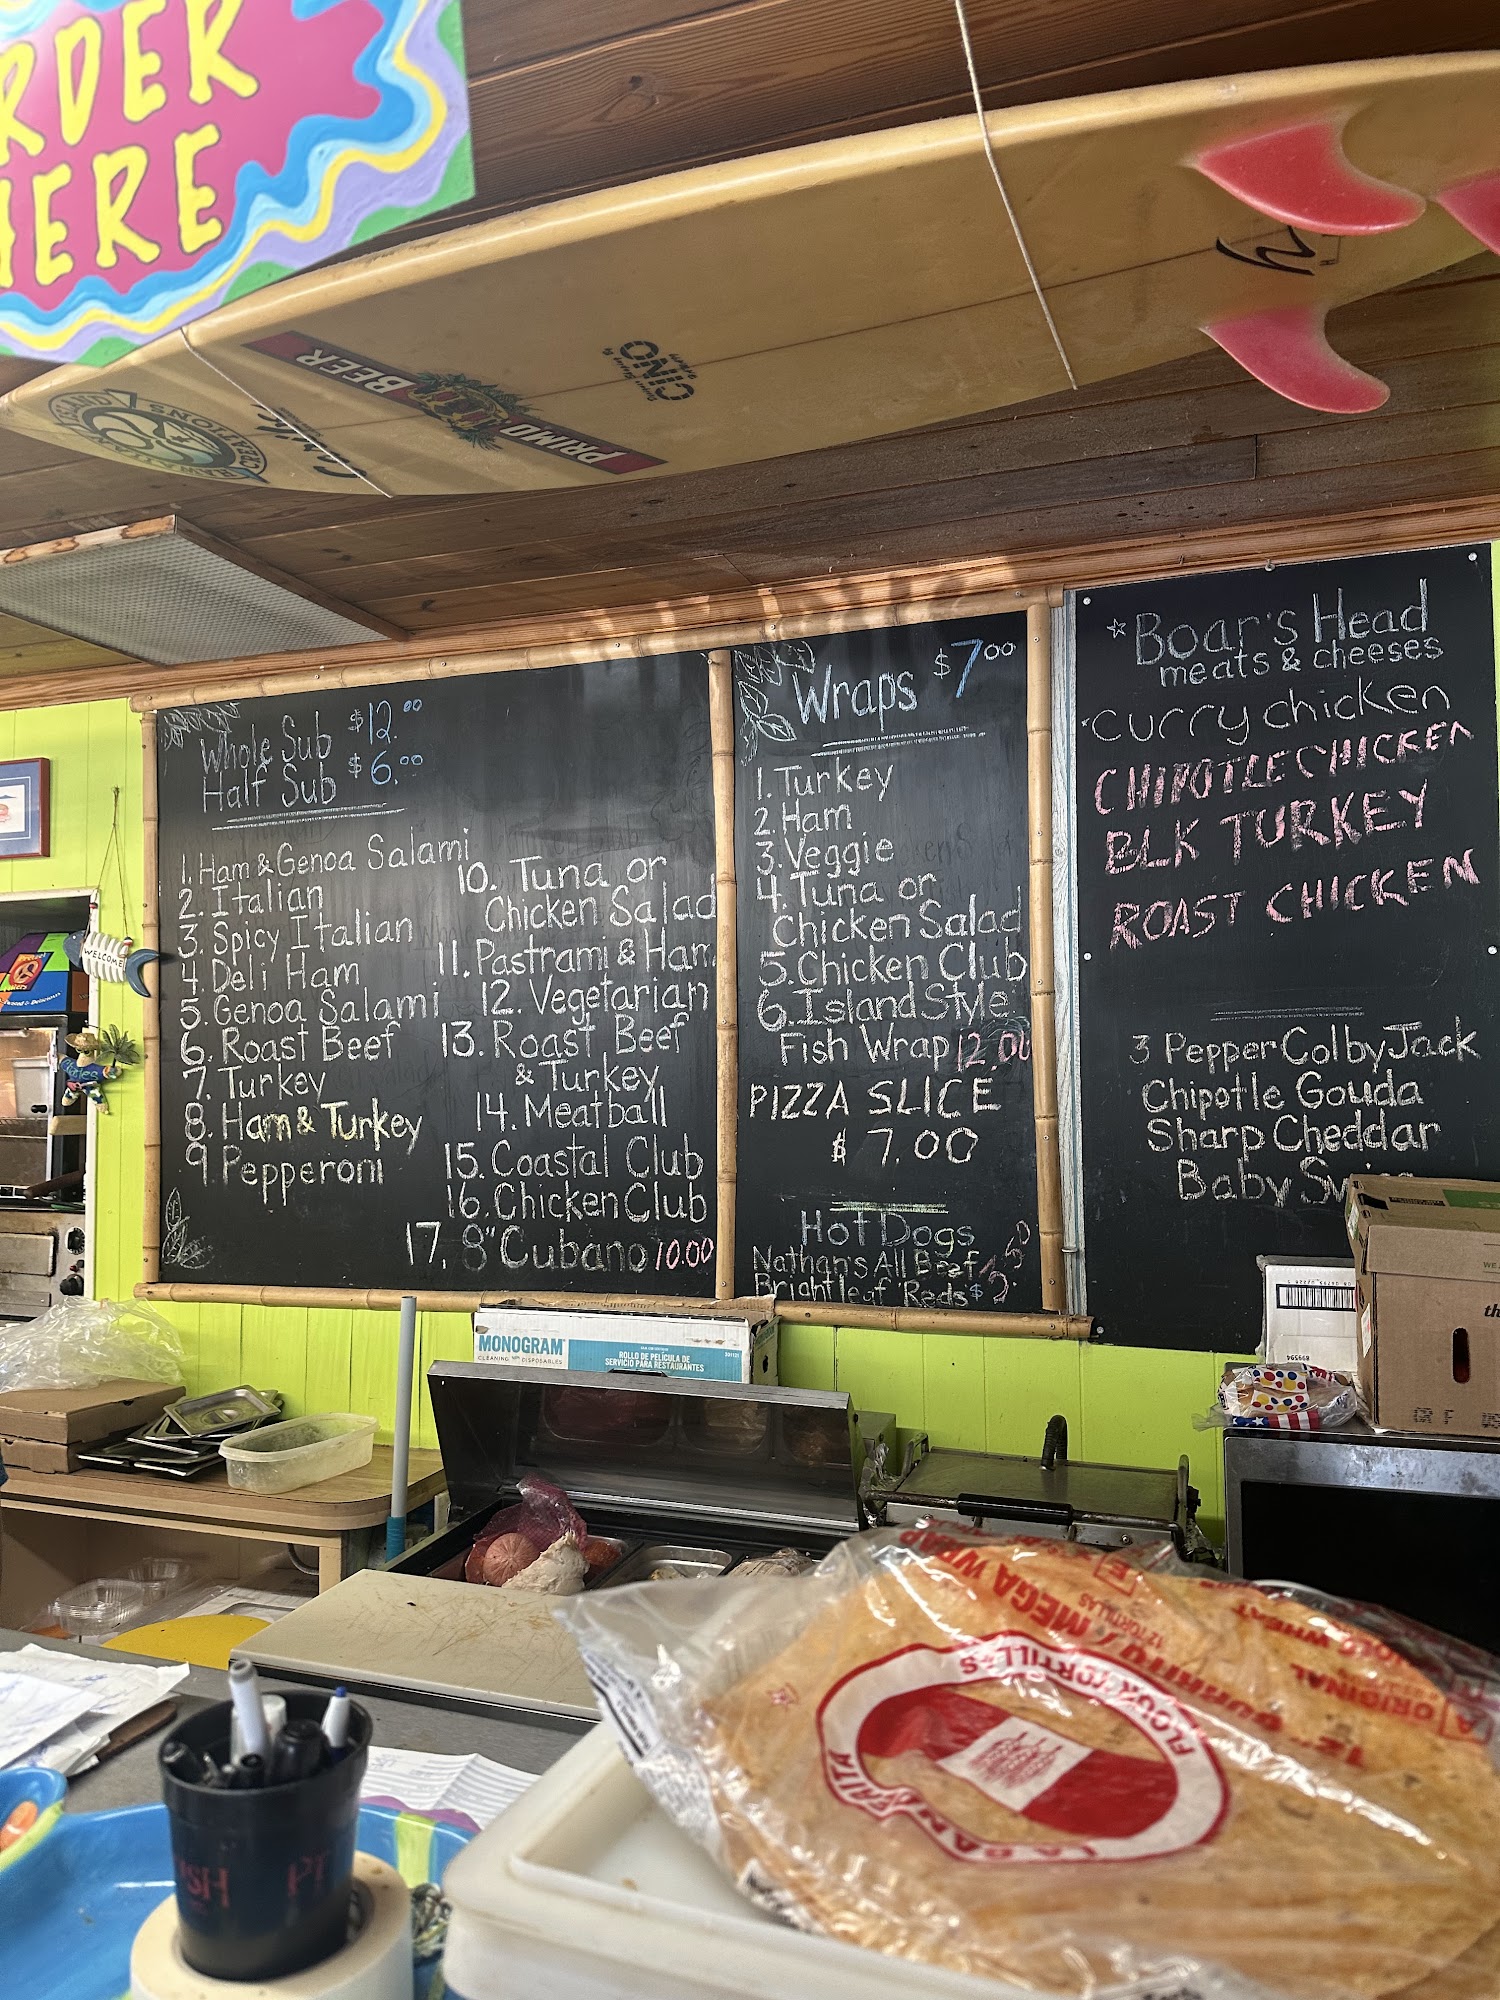 RDER
HERE
HAWAIIAN ISLAND CREATIONS
PRIMO BEER
CINO
WELCOME
Whole Sub $12.00
Half Sub $6.00
1. Ham & Genoa Salami
2. Italian
3. Spicy Italian
4. Deli Ham
5. Genoa Salami
6. Roast Beef
7. Turkey
8. Ham & Turkey
9. Pepperoni
10. Tuna or
Chicken Salad
11. Pastrami & Ham
12. Vegetarian
13. Roast Beef
& Turkey
14. Meatball
15. Coastal Club
16. Chicken Club
17. 8" Cubano 10.00
Wraps $7.00
1. Turkey
2. Ham
3. Veggie
4. Tuna or
Chicken Salad
5. Chicken Club
6. Island Style
Fish Wrap 12.00
PIZZA SLICE
$7.00
Hot Dogs
Nathan's All Beef
Brightleaf Reds $
Boar's Head
meats & cheeses
curry chicken
CHIPOTLE CHICKEN
BLK TURKEY
ROAST CHICKEN
3 Pepper Colby Jack
Chipotle Gouda
Sharp Cheddar
Baby
MONOGRAM
CLEANING AND DISPOSABLES
ROLLO DE PELÍCULA DE
SERVICIO PARA RESTAURANTES
12" BURRITO / MEGA WRAP
12 TORTILLAS
ORIGINAL
LA BANDERITA
FLOUR TORTILLAS